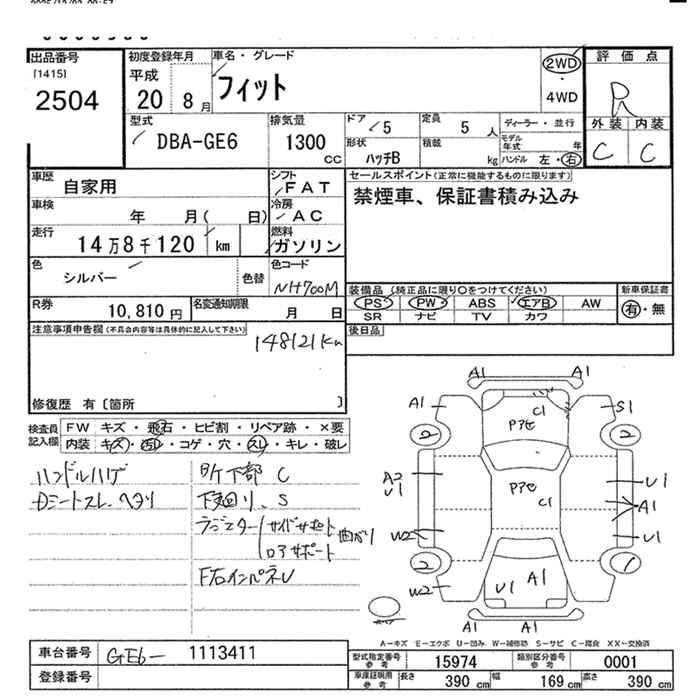 出品番号
[1415]
2504
初度登録年月
平成
20 8月
車名・グレード
フィット
2WD
・
4WD
評価点
R
外装 内装
C C
型式
DBA-GE6
排気量
1300
cc
ドア
5
形状
ハッチB
定員
5人
積載
kg
ディーラー・並行
モデル年式 年
ハンドル 左・右
車歴
自家用
シフト
FAT
車検
年 月( 日)
冷房
AC
走行
14万8千120 km
燃料
ガソリン
色
シルバー
色替
色コード
NH700M
R券
10,810円
名変通知期限
月 日
セールスポイント(正常に機能するものに限ります)
禁煙車、保証書積み込み
装備品 (純正品に限り○をつけてください)
PS PW ABS エアB AW
SR ナビ TV カワ
新車保証書
有・無
後日品
注意事項申告欄(不具合内容等は具体的に記入して下さい)
148121Km
修復歴 有〔箇所 〕
検査員記入欄
FW キズ・飛石・ヒビ割・リペア跡・×要
内装 キズ・汚レ・コゲ・穴・スレ・キレ・破レ
ハンドルハゲ
Dシートスレ、ヘタリ
下部 C
下廻り、S
サイドサポート
ロアサポート
曲がり
F右インパネU
A1 A1
A1 C1 S1
2 Pアセ 2
A2
U1
Pアセ
C1
U1
A1
W2 U1
2 1
W2 U1 A1
A1 A1
A←キズ E←エクボ U←凹み W←補修跡 S←サビ C←腐食 XX←交換済
車台番号
GE6-1113411
登録番号
型式指定番号
参考
15974
類別区分番号
参考
0001
車庫証明用
参考
長さ 390 cm 幅 169 cm 高さ 390 cm